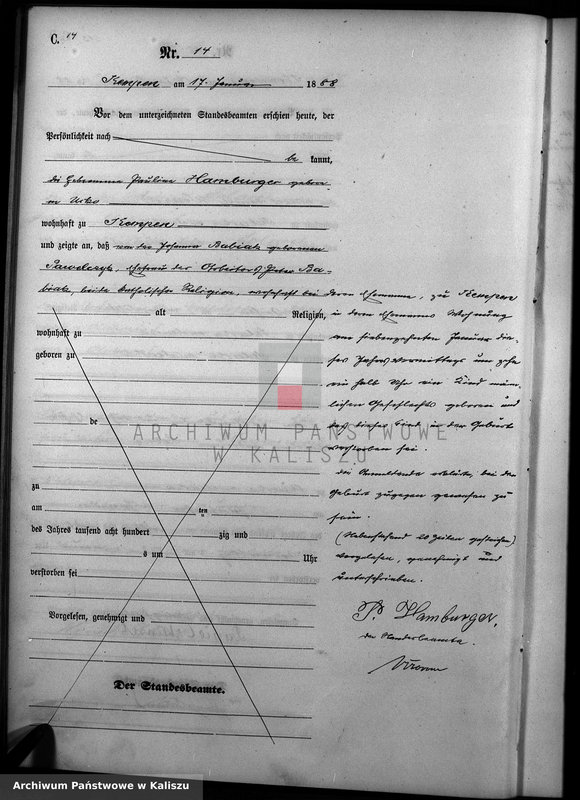 C. 14
Nr. 14
Kempen am 17. Januar 1888
Vor dem unterzeichneten Standesbeamten erschien heute, der
Persönlichkeit nach
be kannt,
die Hebeamme Paulina Hamburger geborene
wohnhaft zu Kempen
und zeigte an, daß von der Johanna Babiak geborenen
Pawelczyk, Ehefrau des Arbeiters Peter Ba-
biak, beide katholischer Religion, wohnhaft bei
alt Religion,
wohnhaft zu
geboren zu
de
zu
am ten
des Jahres tausend acht hundert zig und
s um Uhr
verstorben sei
Vorgelesen, genehmigt und
Der Standesbeamte.
deren Ehemanne, zu Kempen
in deren Ehemannes Wohnung
am siebenzehnten Januar die-
ses Jahres Vormittags um zehn
ein halb Uhr ein Kind männ-
lichen Geschlechts geboren und
daß dieses Kind in der Geburt
verstorben sei.
Die Anmeldende erklärte, bei der
Geburt zugegen gewesen zu
sein.
(Nebenstehend 20 Zeilen gestrichen)
Vorgelesen, genehmigt und
unterschrieben.
P. Hamburger,
der Standesbeamte.
ARCHIWUM PAŃSTWOWE
W KALISZU
Archiwum Państwowe w Kaliszu